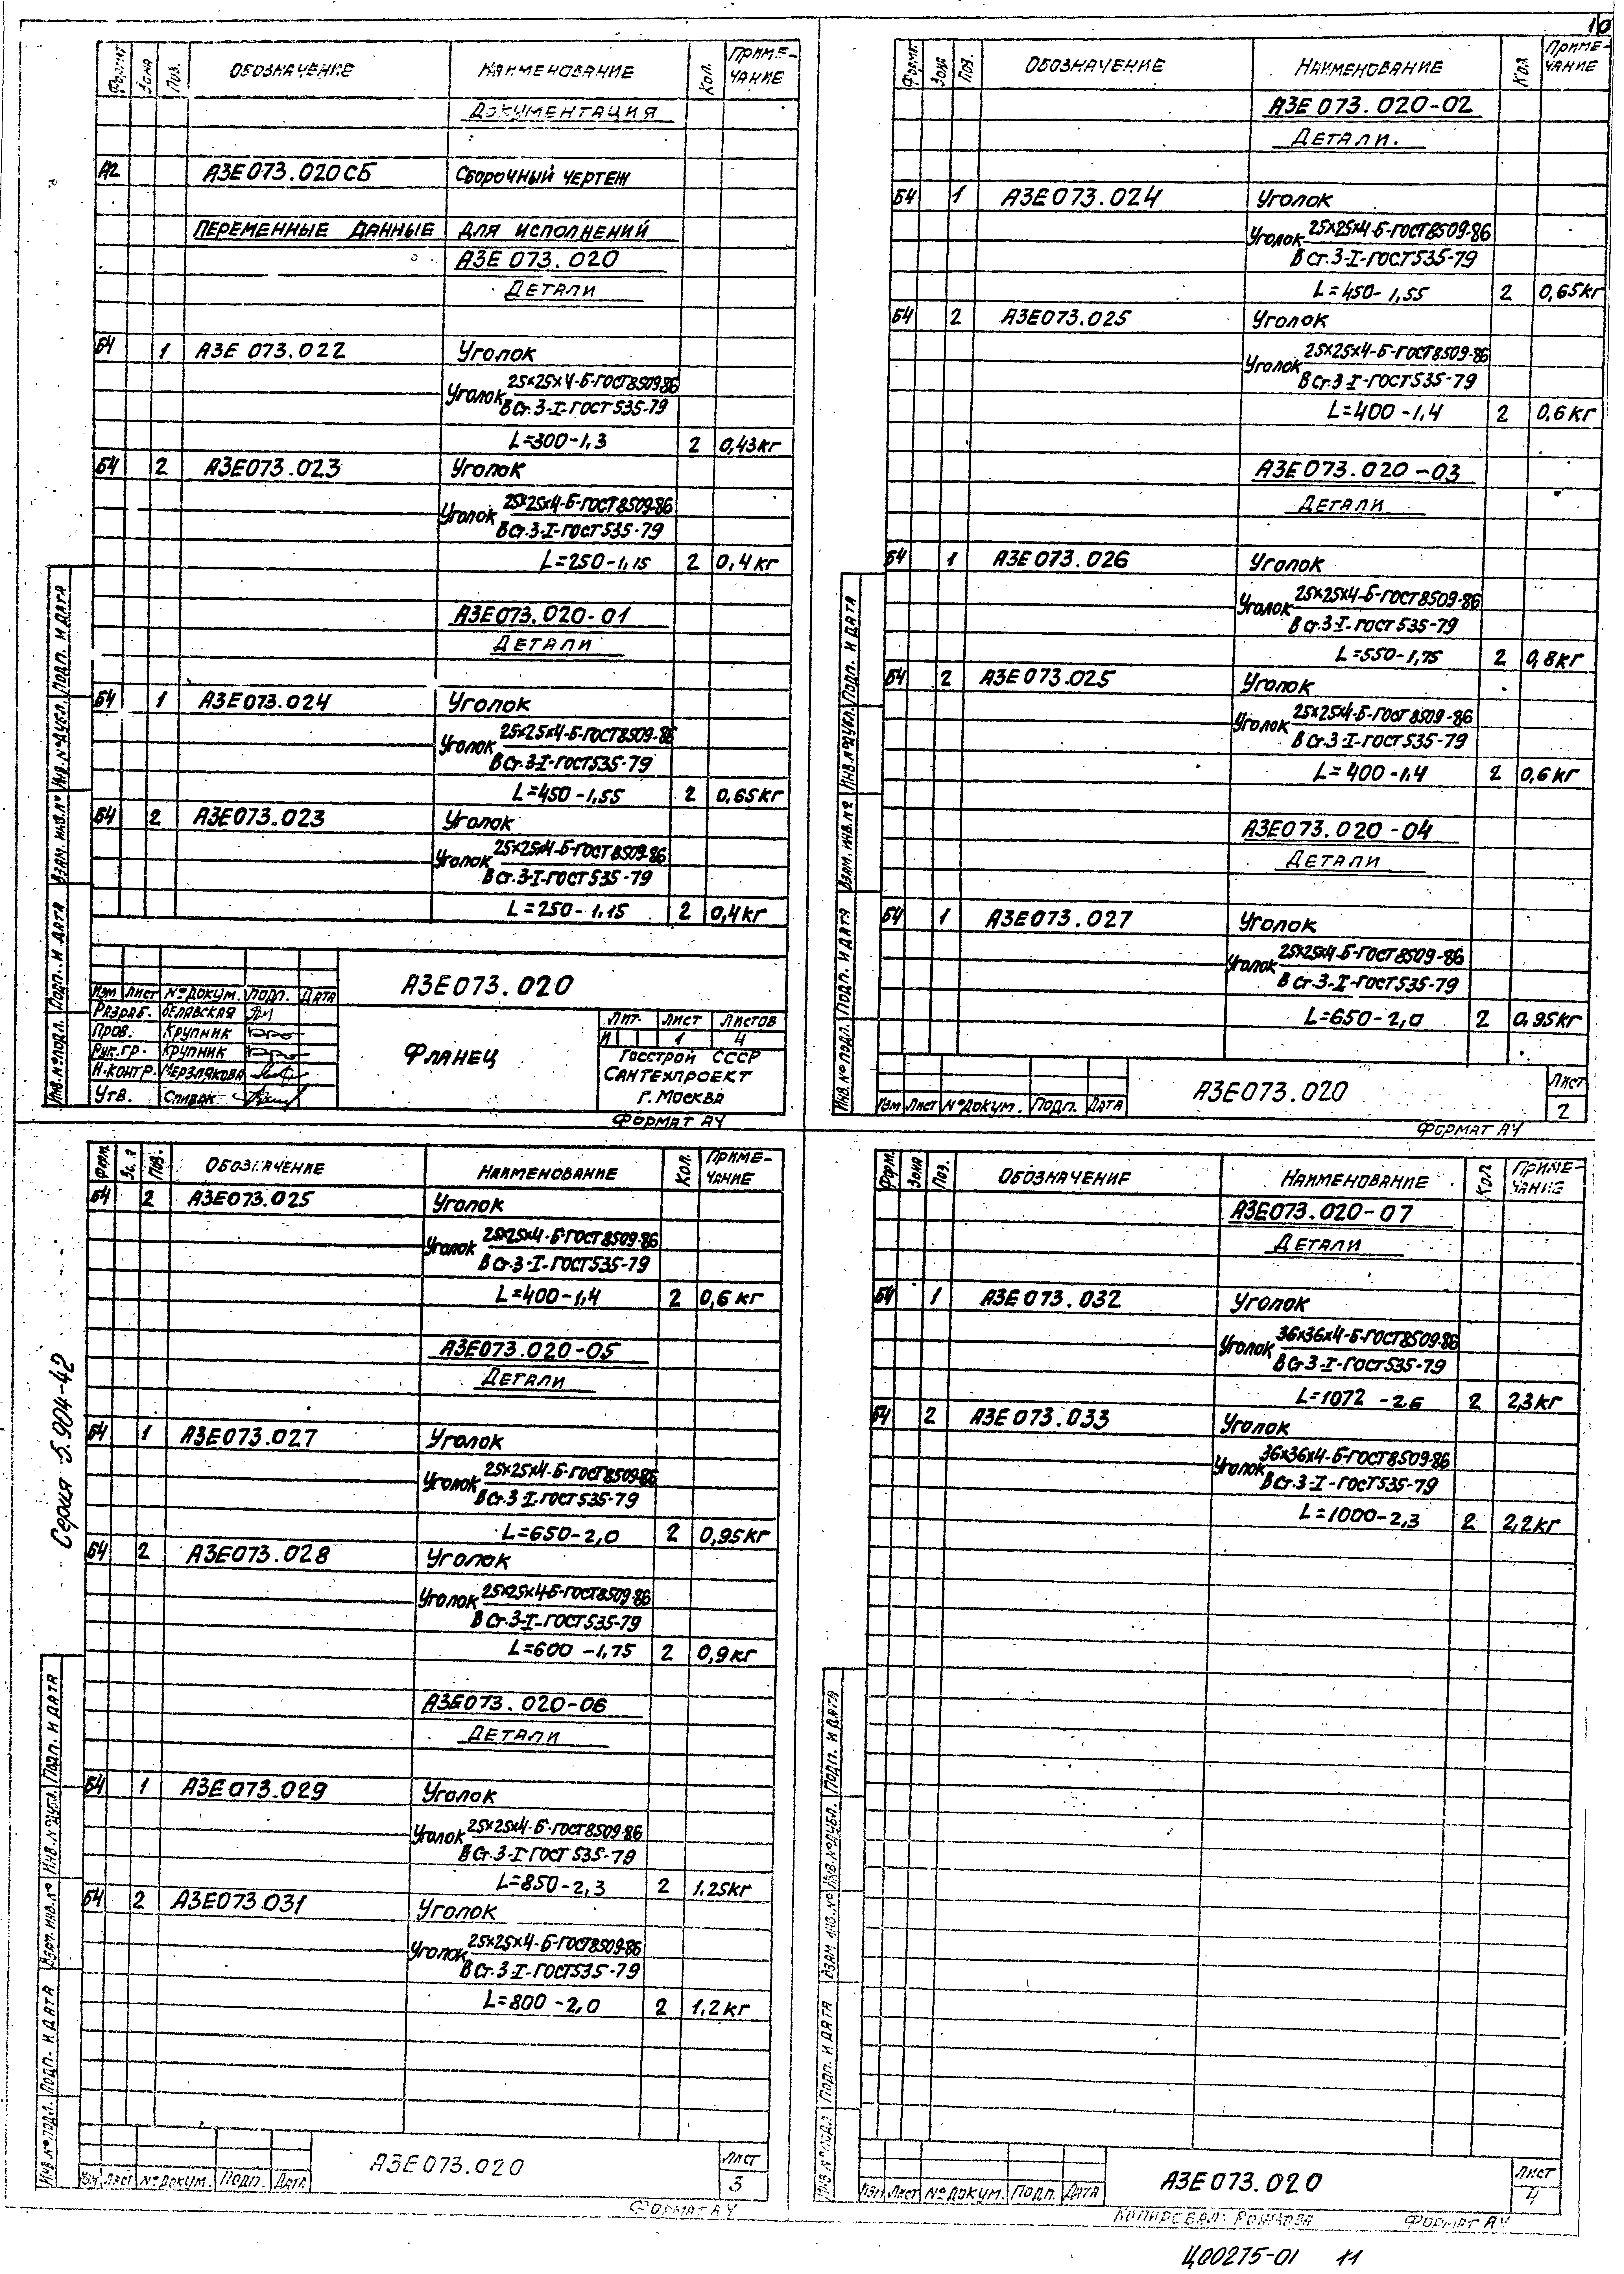 10
Формат Зона Поз. ОБОЗНАЧЕНИЕ НАИМЕНОВАНИЕ Кол. ПРИМЕ-
ЧАНИЕ
ДОКУМЕНТАЦИЯ
А2 А3Е073.020СБ СБОРОЧНЫЙ ЧЕРТЕЖ
ПЕРЕМЕННЫЕ ДАННЫЕ ДЛЯ ИСПОЛНЕНИЙ
А3Е 073.020
ДЕТАЛИ
Б4 1 А3Е 073.022 Уголок
Уголок 25х25х4-Б-ГОСТ8509-86
ВСт.3-I-ГОСТ535-79
L=300-1,3 2 0,43кг
Б4 2 А3Е073.023 Уголок
Уголок 25х25х4-Б-ГОСТ8509-86
ВСт.3-I-ГОСТ535-79
L=250-1,15 2 0,4кг
А3Е073.020-01
ДЕТАЛИ
Б4 1 А3Е073.024 Уголок
Уголок 25х25х4-Б-ГОСТ8509-86
ВСт.3-I-ГОСТ535-79
L=450-1,55 2 0,65кг
Б4 2 А3Е073.023 Уголок
Уголок 25х25х4-Б-ГОСТ8509-86
ВСт.3-I-ГОСТ535-79
L=250-1,15 2 0,4кг
Инв.№подл. Подп. и дата Взам. инв.№ Инв.№дубл. Подп. и дата
А3Е073.020
Изм Лист №докум. Подп. Дата
Разраб. Белявская
Пров. Крупник
Рук.гр. Крупник
Н.контр. Мерзлякова
Утв. Спивак
ФЛАНЕЦ
Лит. Лист Листов
И 1 4
Госстрой СССР
САНТЕХПРОЕКТ
г. Москва
ФОРМАТ А4
Формат Зона Поз. ОБОЗНАЧЕНИЕ НАИМЕНОВАНИЕ Кол ПРИМЕ-
ЧАНИЕ
А3Е073.020-02
ДЕТАЛИ.
Б4 1 А3Е073.024 Уголок
Уголок 25х25х4-Б-ГОСТ8509-86
ВСт.3-I-ГОСТ535-79
L=450-1,55 2 0,65кг
Б4 2 А3Е073.025 Уголок
Уголок 25х25х4-Б-ГОСТ8509-86
ВСт.3-I-ГОСТ535-79
L=400-1,4 2 0,6кг
А3Е073.020-03
ДЕТАЛИ
Б4 1 А3Е073.026 Уголок
Уголок 25х25х4-Б-ГОСТ8509-86
ВСт.3-I-ГОСТ535-79
L=550-1,75 2 0,8кг
Б4 2 А3Е073.025 Уголок
Уголок 25х25х4-Б-ГОСТ8509-86
ВСт.3-I-ГОСТ535-79
L=400-1,4 2 0,6кг
А3Е073.020-04
ДЕТАЛИ
Б4 1 А3Е073.027 Уголок
Уголок 25х25х4-Б-ГОСТ8509-86
ВСт.3-I-ГОСТ535-79
L=650-2,0 2 0,95кг
Инв.№подл. Подп. и дата Взам. инв.№ Инв.№дубл. Подп. и дата
Изм Лист №докум. Подп. Дата А3Е073.020 Лист
2
ФОРМАТ А4
Форм. Поз. ОБОЗНАЧЕНИЕ НАИМЕНОВАНИЕ Кол. ПРИМЕ-
ЧАНИЕ
Б4 2 А3Е073.025 Уголок
Уголок 25х25х4-Б-ГОСТ8509-86
ВСт.3-I-ГОСТ535-79
L=400-1,4 2 0,6кг
А3Е073.020-05
ДЕТАЛИ
Б4 1 А3Е073.027 Уголок
Уголок 25х25х4-Б-ГОСТ8509-86
ВСт.3-I-ГОСТ535-79
L=650-2,0 2 0,95кг
Б4 2 А3Е073.028 Уголок
Уголок 25х25х4-Б-ГОСТ8509-86
ВСт.3-I-ГОСТ535-79
L=600-1,75 2 0,9кг
А3Е073.020-06
ДЕТАЛИ
Б4 1 А3Е073.029 Уголок
Уголок 25х25х4-Б-ГОСТ8509-86
ВСт.3-I-ГОСТ535-79
L=850-2,3 2 1.25кг
Б4 2 А3Е073.031 Уголок
Уголок 25х25х4-Б-ГОСТ8509-86
ВСт.3-I-ГОСТ535-79
L=800-2,0 2 1,2кг
Серия 5.904-42
Инв.№подл. Подп. и дата Взам. инв.№ Инв.№дубл. Подп. и дата
Изм Лист №докум. Подп. Дата А3Е073.020 Лист
3
ФОРМАТ А4
Форм. Зона Поз. ОБОЗНАЧЕНИЕ НАИМЕНОВАНИЕ Кол ПРИМЕ-
ЧАНИЕ
А3Е073.020-07
ДЕТАЛИ
Б4 1 А3Е073.032 Уголок
Уголок 36х36х4-Б-ГОСТ8509-86
ВСт.3-I-ГОСТ535-79
L=1072-2,6 2 2,3кг
Б4 2 А3Е073.033 Уголок
Уголок 36х36х4-Б-ГОСТ8509-86
ВСт.3-I-ГОСТ535-79
L=1000-2,3 2 2,2кг
Инв.№подл Подп. и дата Взам. инв.№ Инв.№дубл. Подп. и дата
Изм Лист №докум. Подп. Дата А3Е073.020 Лист
4
Копировал: ФОРМАТ А4
Ц00275-01 11